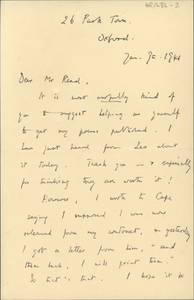 26 Park Town
Oxford.
Jan. 9th 1944
Dear Mr Read,
It is most awfully kind of
you to suggest helping me yourself
to get my poems published. I
have just heard from                about
it today. Thank you – & especially
for thinking they are worth it!
However, I wrote to Cape
saying I supposed I was now
released from my contract, & yesterday
I got a letter from him, "and
then back, I will print them."
So that's that. I hope it be